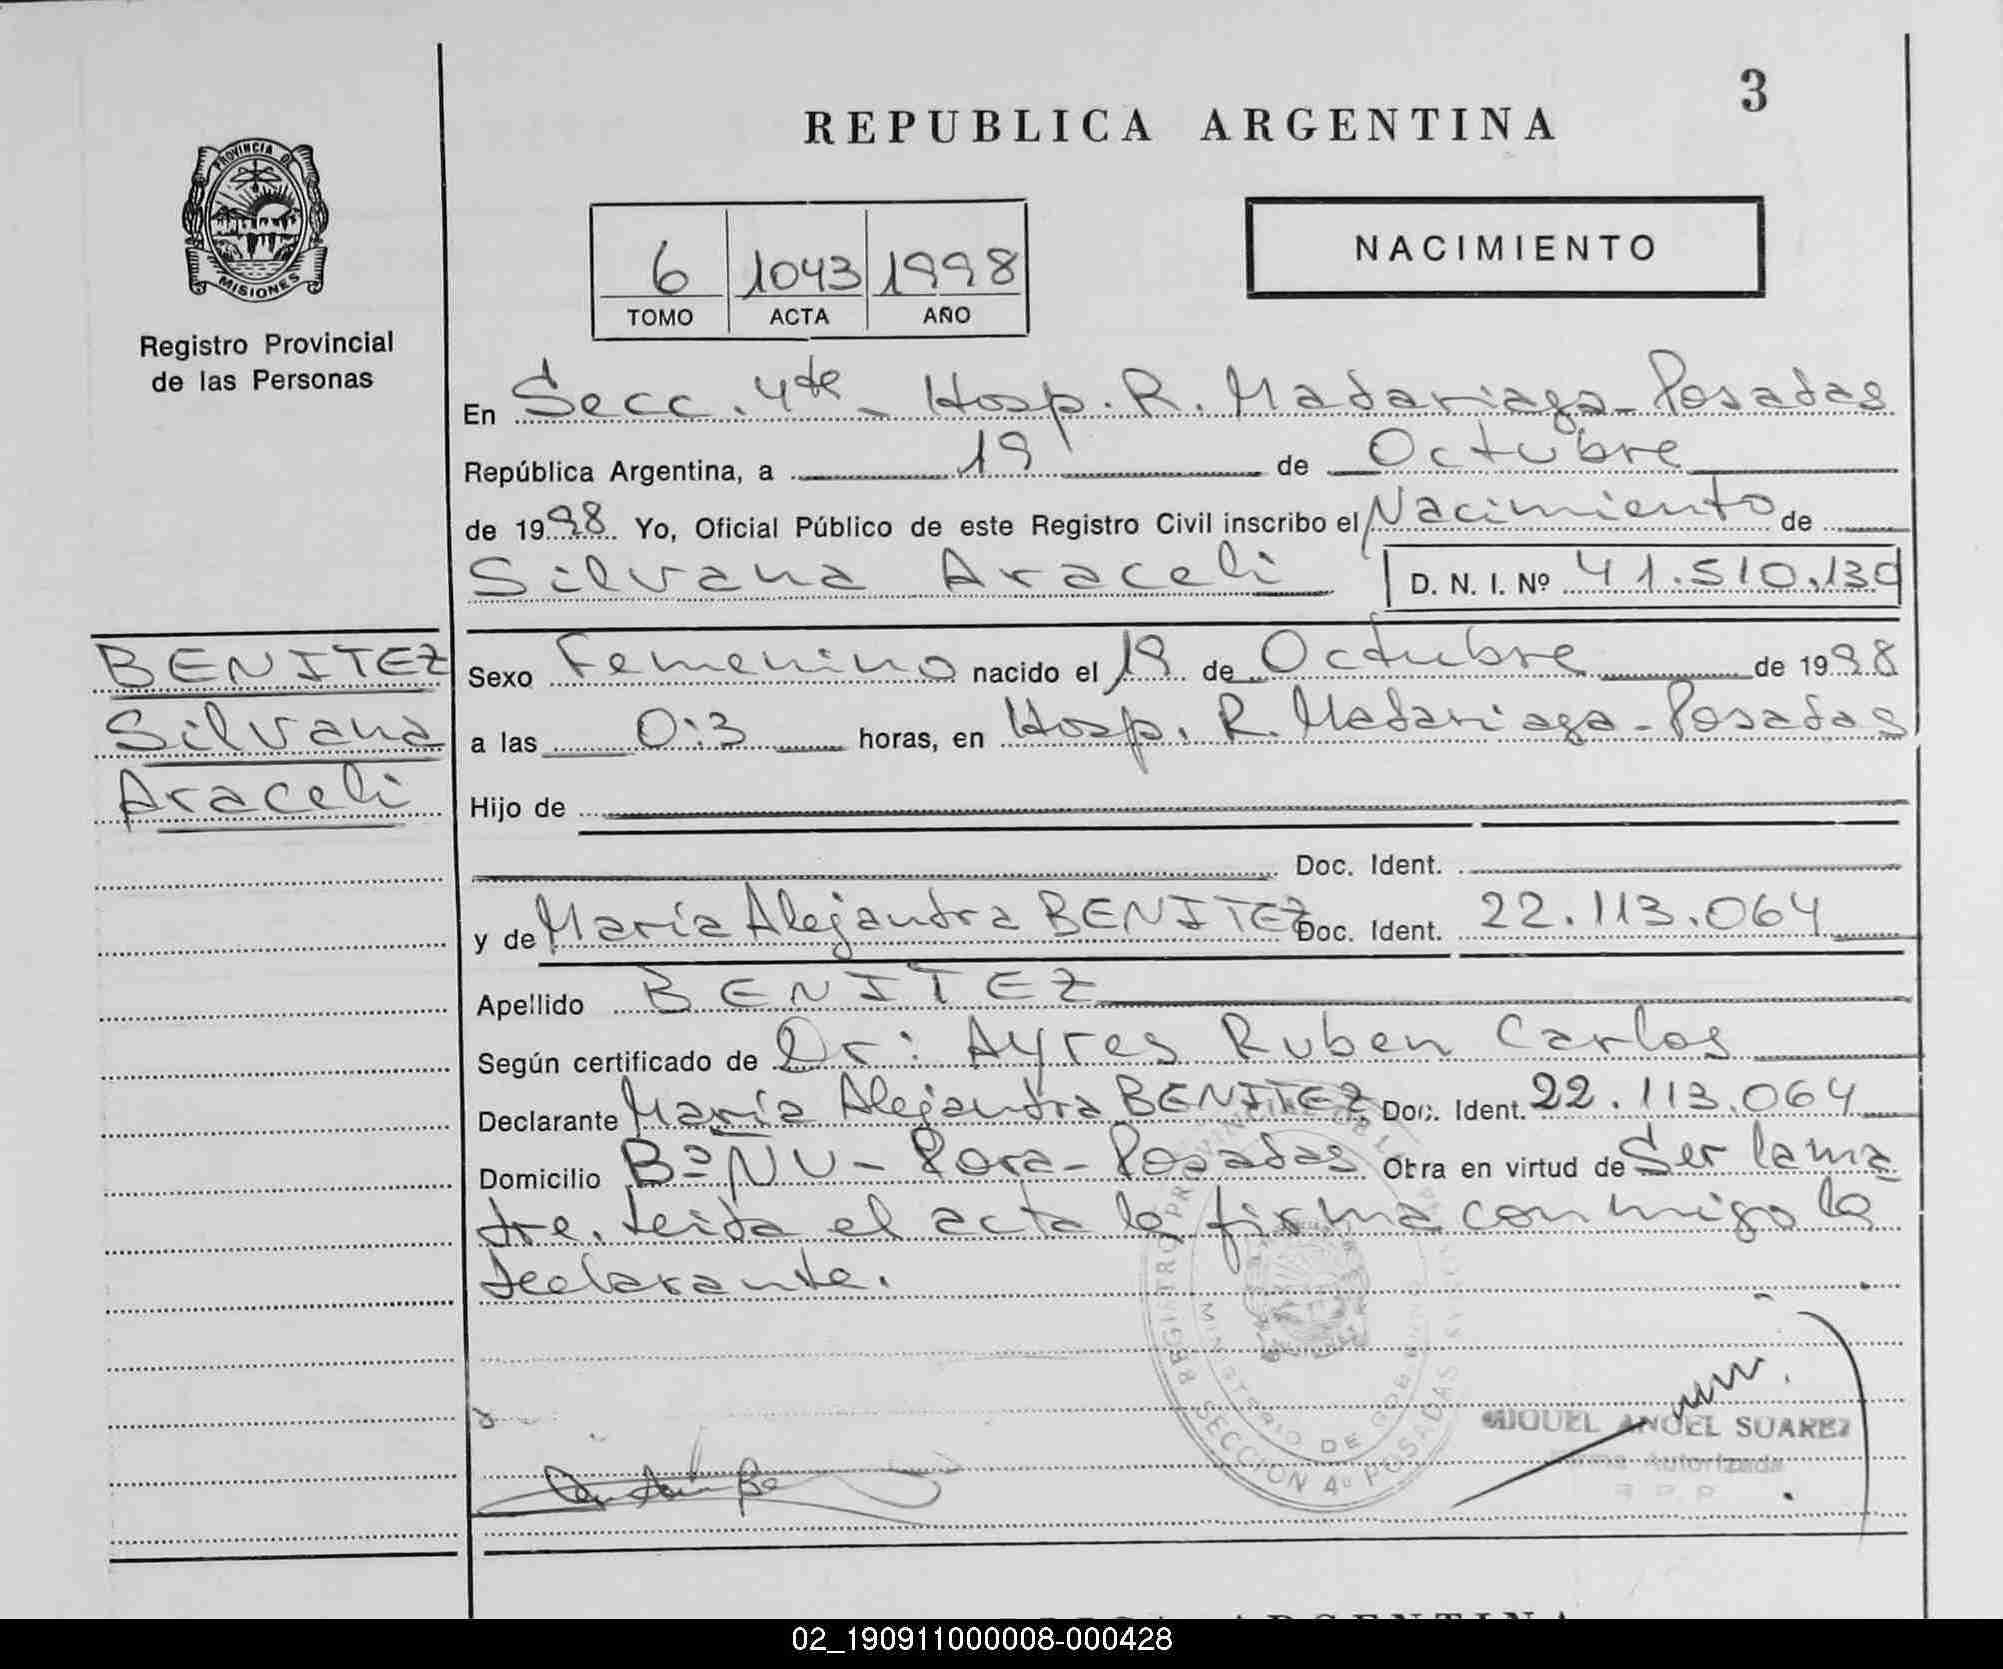 3
REPUBLICA ARGENTINA
PROVINCIA DE
MISIONES
Registro Provincial
de las Personas
6 1043 1998
TOMO ACTA AÑO
NACIMIENTO
En Secc. 4ta - Hosp. R. Madariaga - Posadas
República Argentina, a 19 de Octubre
de 1998 Yo, Oficial Público de este Registro Civil inscribo el Nacimiento de
Silvana Araceli D. N. I. Nº 41.510.130
BENITEZ
Silvana
Araceli
Sexo Femenino nacido el 19 de Octubre de 1998
a las 0:3 horas, en Hosp. R. Madariaga - Posadas
Hijo de
Doc. Ident.
y de María Alejandra BENITEZ Doc. Ident. 22.113.064
Apellido BENITEZ
Según certificado de Dr: Ayres Ruben Carlos
Declarante María Alejandra BENITEZ Doc. Ident. 22.113.064
Domicilio Bº ÑU - Pora - Posadas Obra en virtud de Ser la ma
dre. Leida el acta la firma conmigo la
declarante.
SECCION 4º POSADAS
MINISTERIO DE GOB
MIGUEL ANGEL SUAREZ
Firma Autorizada
R P P
02_190911000008-000428